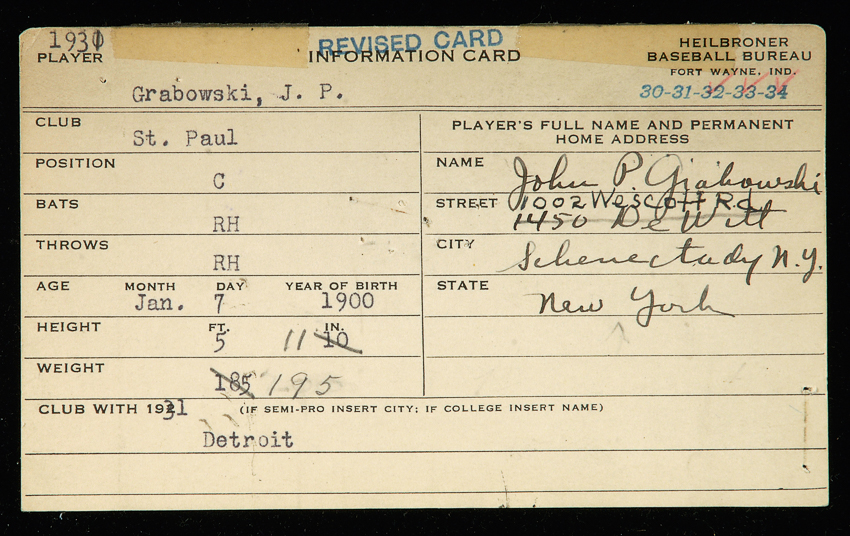 1931
REVISED CARD
PLAYER
INFORMATION CARD
HEILBRONER
BASEBALL BUREAU
FORT WAYNE, IND.
30-31-32-33-34
Grabowski, J. P.
CLUB
St. Paul
POSITION
C
BATS
RH
THROWS
RH
AGE MONTH DAY YEAR OF BIRTH
Jan. 7 1900
HEIGHT FT. IN.
5 11 10
WEIGHT
185 195
PLAYER'S FULL NAME AND PERMANENT
HOME ADDRESS
NAME John P. Grabowski
STREET 1002 Wescott Rd.
1450 DeWitt
CITY Schenectady N.Y.
STATE New York
CLUB WITH 1931 (IF SEMI-PRO INSERT CITY; IF COLLEGE INSERT NAME)
Detroit